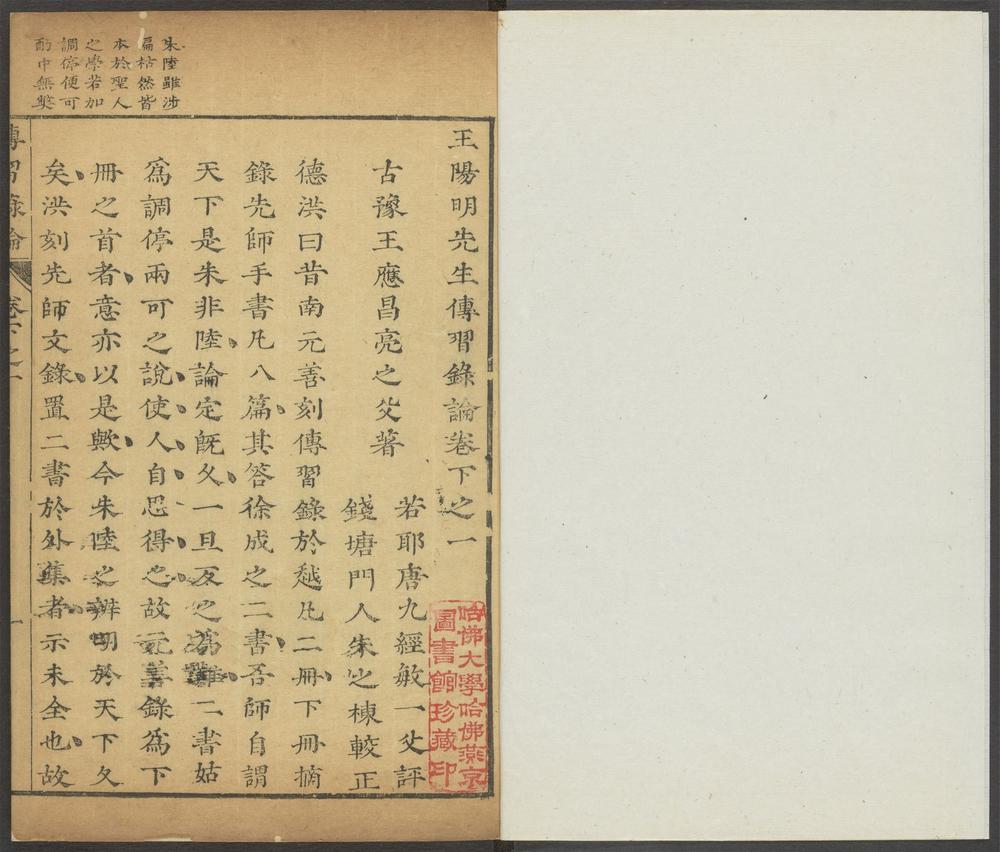 王陽明先生傳習錄論卷下之一
古豫王應昌亮之父著
若耶唐九經敏一父評
錢塘門人朱之棟較正
德洪曰昔南元善刻傳習錄於越凡二冊下冊摘
錄先師手書凡八篇其答徐成之二書吾師自謂
天下是朱非陸論定既久一旦反之為難二書姑
為調停兩可之說使人自思得之故元善錄為下
冊之首者意亦以是歟今朱陸之辨明於天下久
矣洪刻先師文錄置二書於外集者示未全也故
朱陸雖涉
偏枯然皆
本於聖人
之學若加
調停便可
酌中無獘
傳習錄論
卷下之一
一
哈佛大學哈佛燕京
圖書館珍藏印